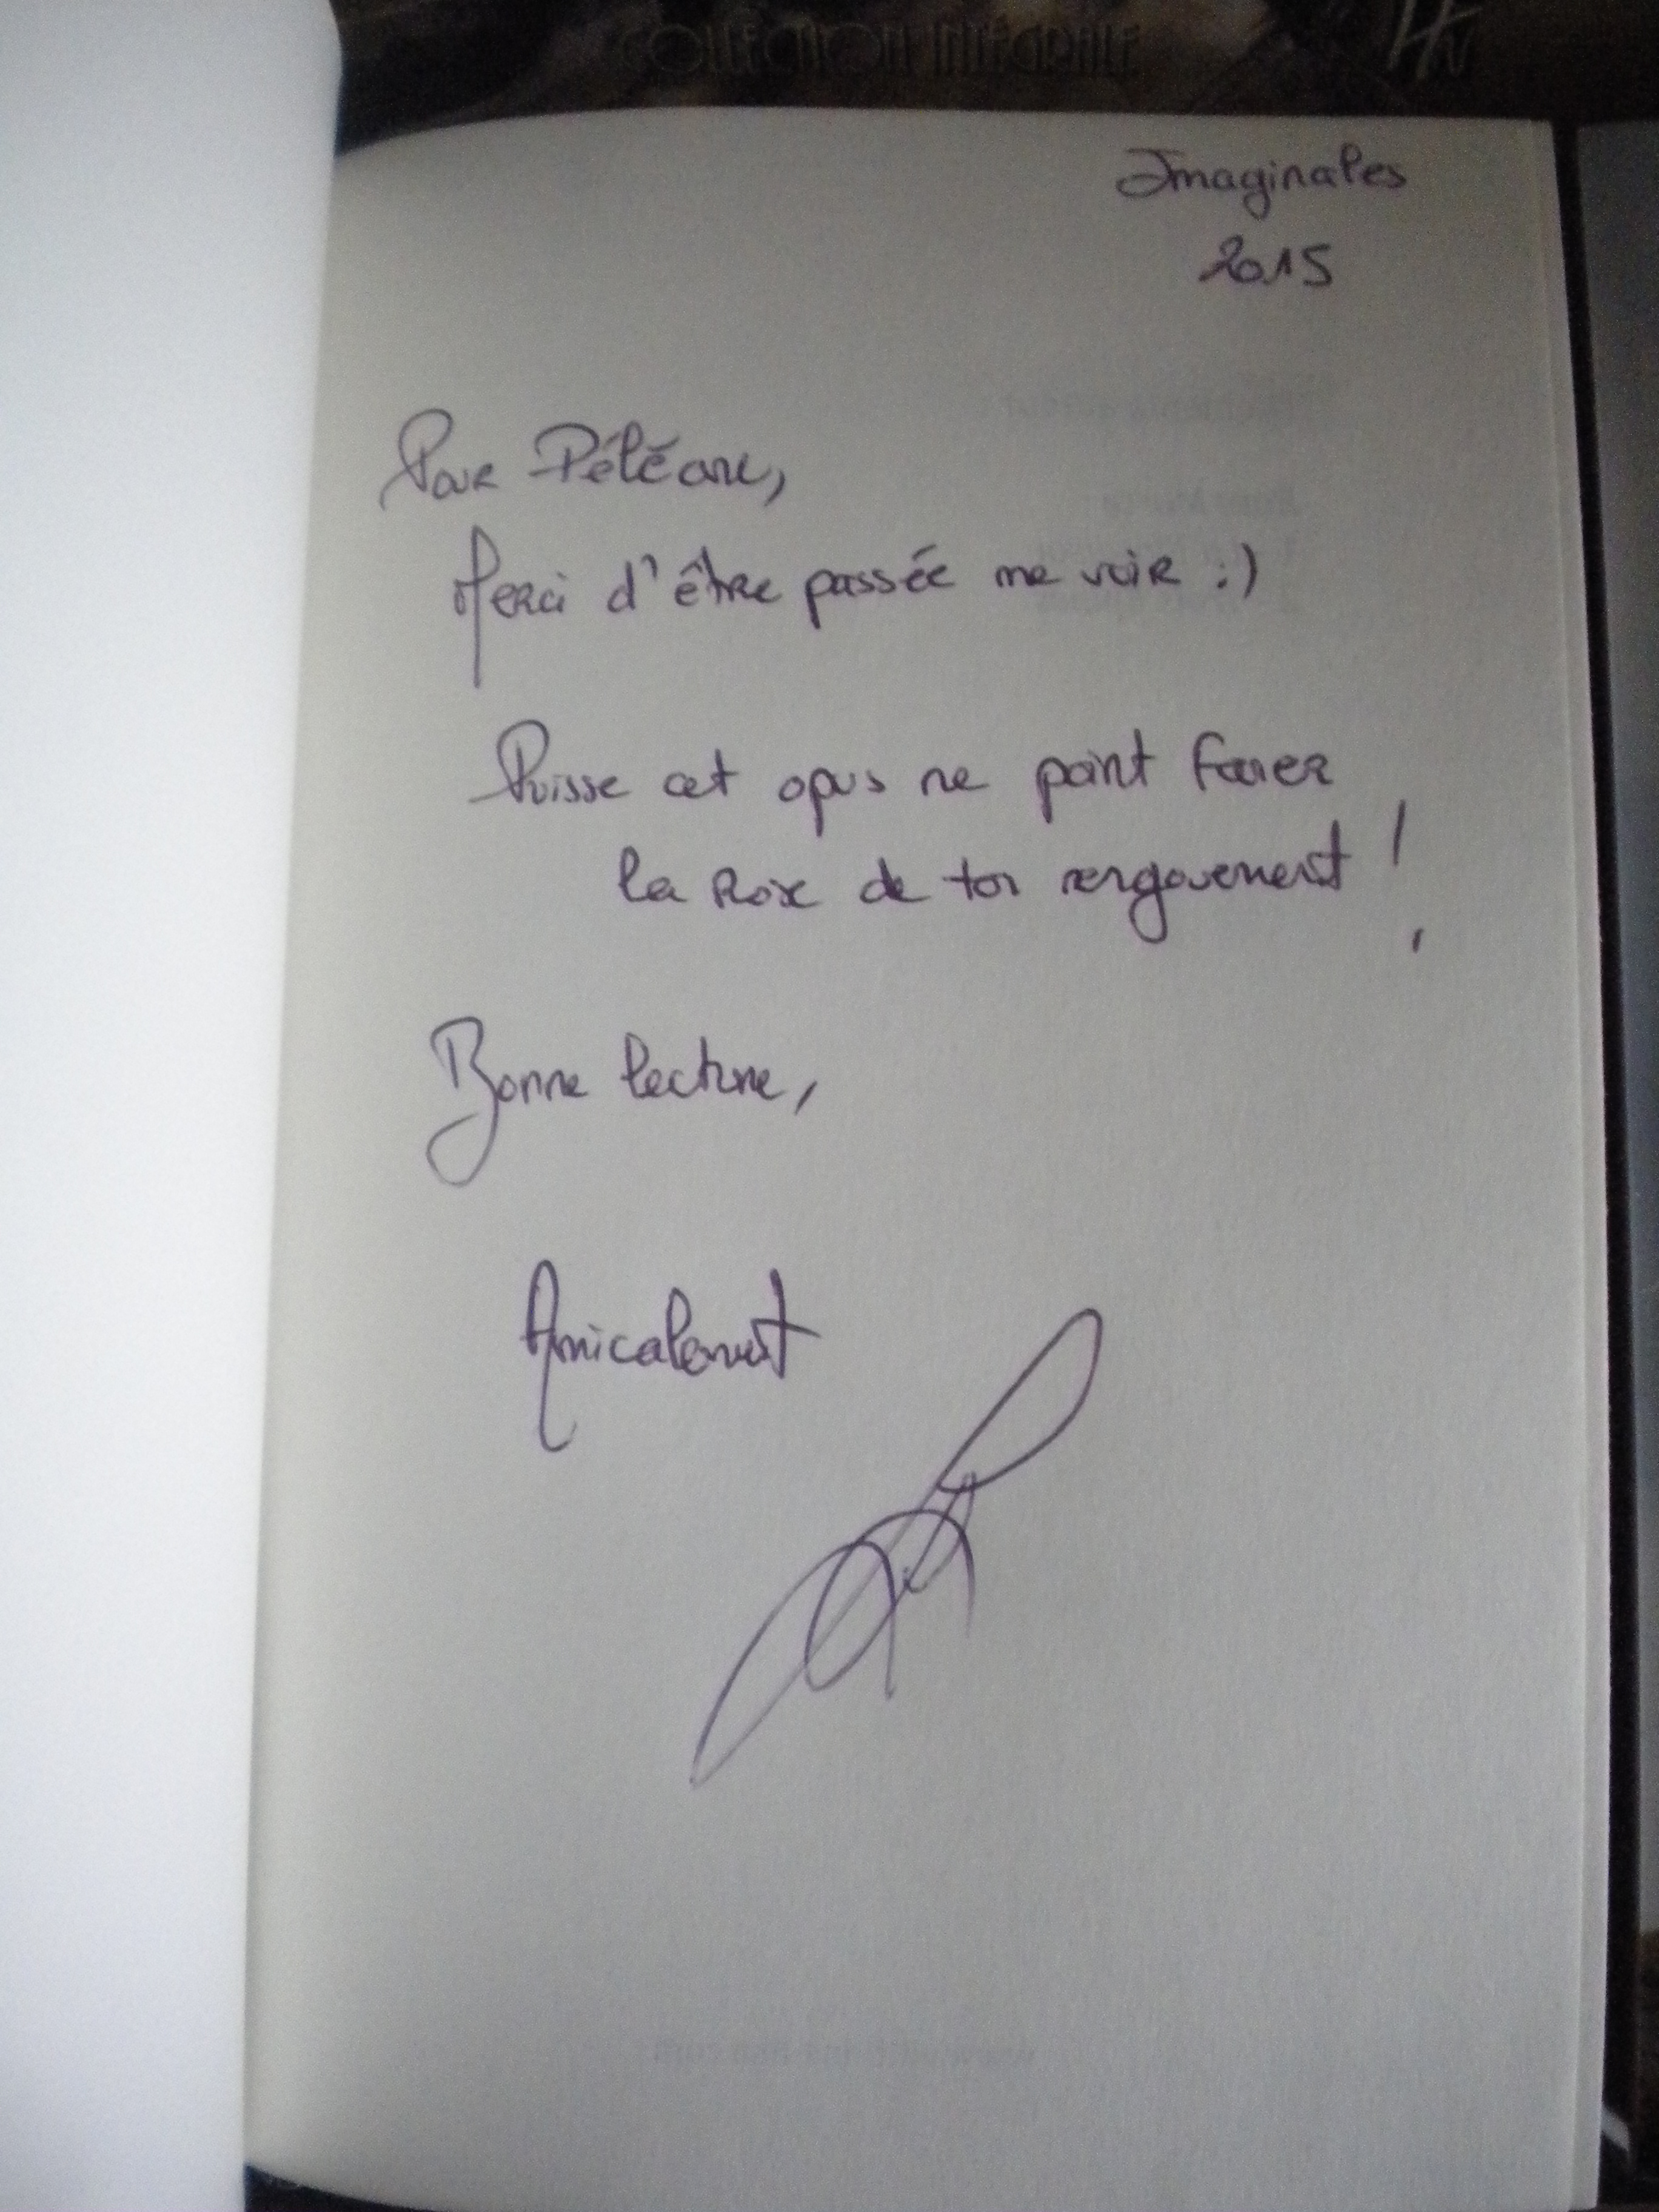 COLLECTION INTÉGRALE
Imaginales
2015
Pour
Merci d'être passée me voir :)
Puisse cet opus ne point faner
la rose de ton engouement !
Bonne lecture,
Amicalement